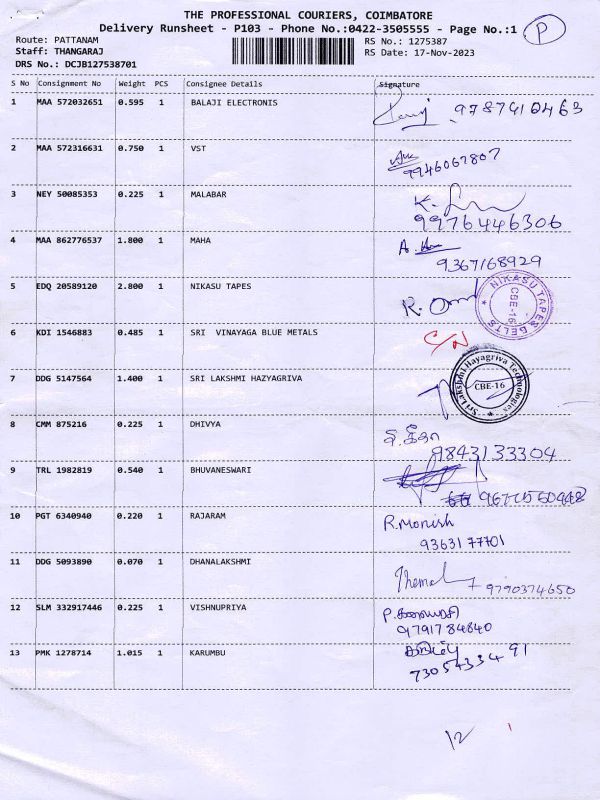 THE PROFESSIONAL COURIERS, COIMBATORE
Delivery Runsheet - P103 - Phone No.:0422-3505555 - Page No.:1 P
Route: PATTANAM RS No.: 1275387
Staff: THANGARAJ RS Date: 17-Nov-2023
DRS No.: DCJB127538701
S No Consignment No Weight PCS Consignee Details Signature
1 MAA 572032651 0.595 1 BALAJI ELECTRONIS 9787410463
2 MAA 572316631 0.750 1 VST
9946067807
3 NEY 50085353 0.225 1 MALABAR K.
9976446306
4 MAA 862776537 1.800 1 MAHA A.
9367168929
5 EDQ 20589120 2.800 1 NIKASU TAPES R.
NIKASU TAPES BELTS
CBE-16
6 KDI 1546883 0.485 1 SRI VINAYAGA BLUE METALS C/N
7 DDG 5147564 1.400 1 SRI LAKSHMI HAZYAGRIVA
Sri Lakshmi Hayagriva Technologies
CBE-16
8 CMM 875216 0.225 1 DHIVYA
9843133304
9 TRL 1982819 0.540 1 BHUVANESWARI
10 PGT 6340940 0.220 1 RAJARAM R.Monish
9363177701
11 DDG 5093890 0.070 1 DHANALAKSHMI
9790374650
12 SLM 332917446 0.225 1 VISHNUPRIYA
9791784840
13 PMK 1278714 1.015 1 KARUMBU
7305433491
12